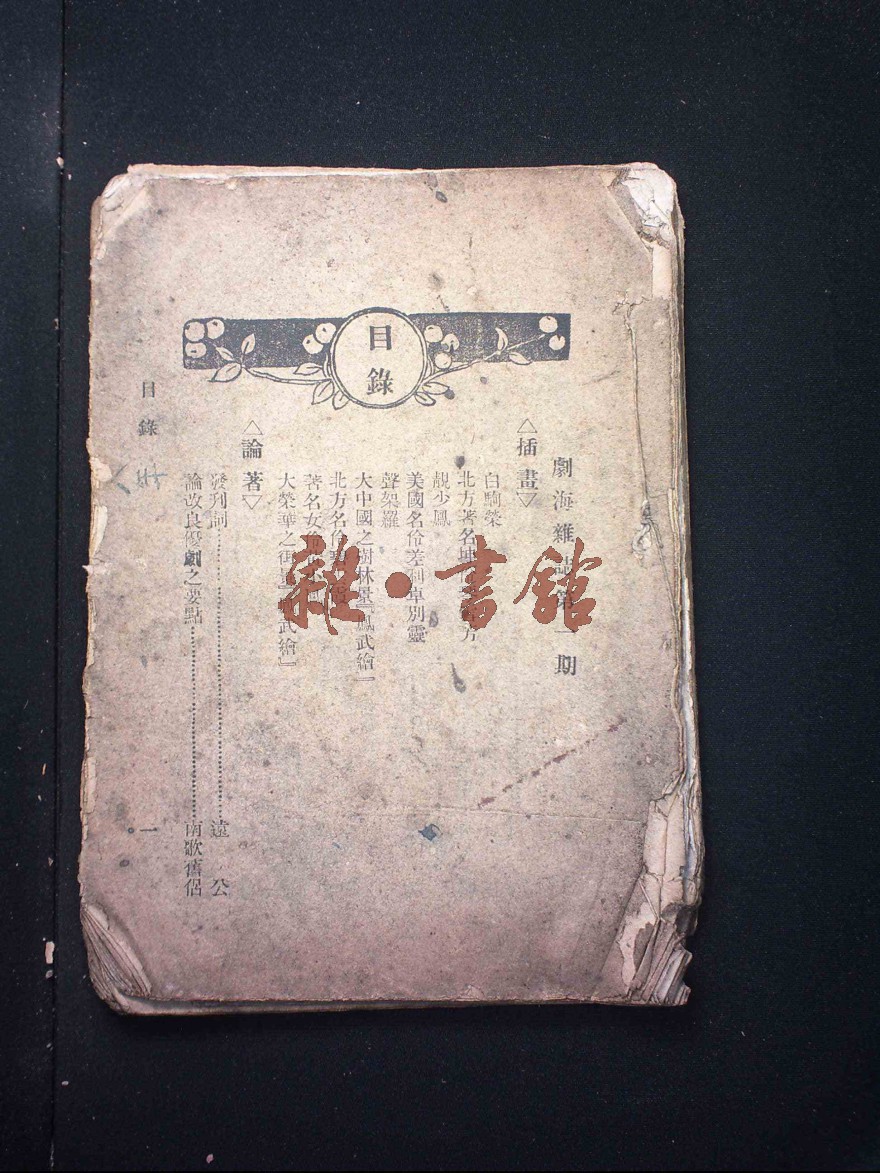 目錄
劇海雜誌第一期
△插畫▽
白駒榮
北方著名坤伶 方
靚少鳳
美國名伶差利卓別靈
聲架羅
大中國之樹林景『鳳武繪』
北方名伶
著名女伶
大榮華之街景『鳳武繪』
△論著▽
發刊詞 遠公
論改良優劇之要點 南歌舊侶
目錄
一
雜·書館